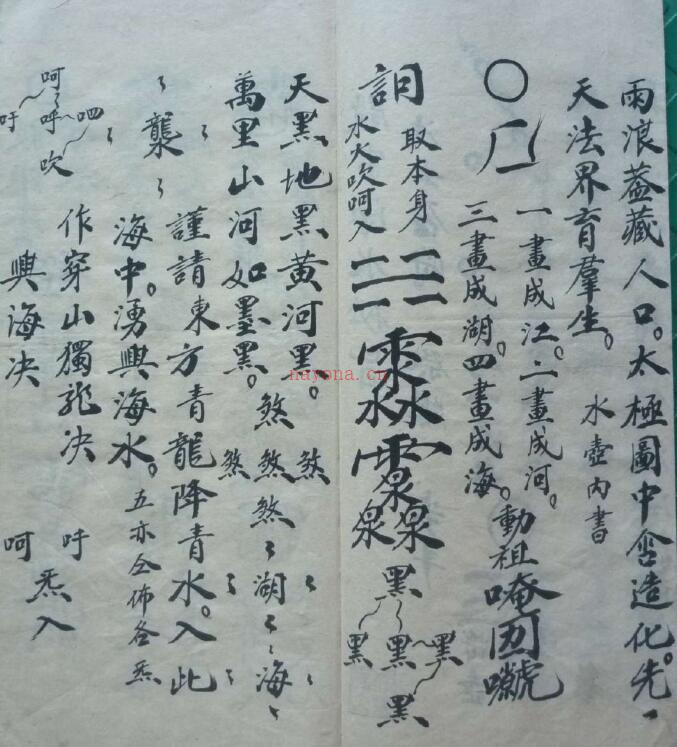 雨浪蓋藏人口。太極圖中含造化。先
天法界育羣生。 水壺内書
一畫成江。二畫成河。
三畫成湖。四畫成海。動祖唵
取本身
水火吹呵入
黑
黑 黑 黑
黑
天黑地黑黃河黑。
萬里山河如墨黑。煞
煞 煞 煞
煞〻湖〻〻海〻
〻龑〻
謹請東方青龍降青水。入此
海中。湧興海水。五亦仝佈各炁
呵呼吹呬吁
作穿山獨龍決
興海決
吁呵炁入
nayona.cn